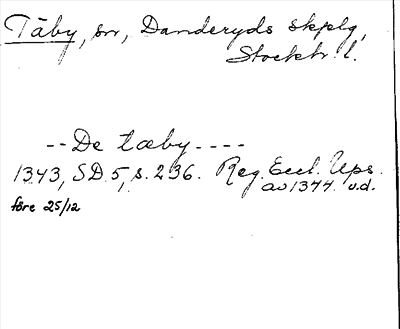 Täby, sn, Danderyds skplg,
Stockh. l.
-- De tæby ----
1343, SD 5, s. 236. Reg. Eccl. Ups.
av 1344. u.d.
före 25/12